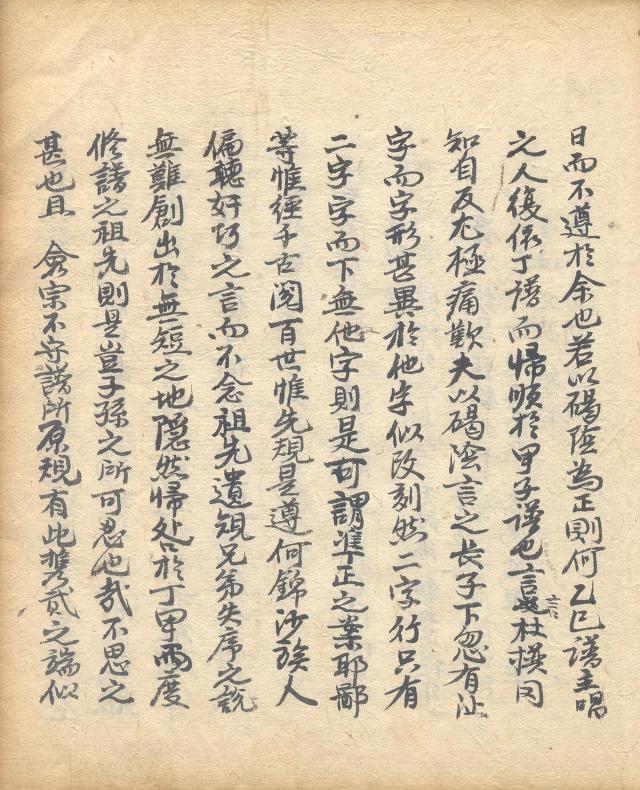 日而不遵於余也若以碣陰為正則何乙巳譜主唱
之人復依丁譜而帰順於甲子譜也言言杜撰罔
知自反尤極痛歎夫以碣陰言之長子下忽有
字而字形甚異於他字似改刻然二字行只有
二字字而下無他字則是可謂準正之案耶鄙
等惟經千古閱百世惟先規是遵何錦沙族人
偏聽奸巧之言而不念祖先遺規兄弟失序之說
無難創出於無短之地隱然帰咎於丁甲兩度
修譜之祖先則是豈子孫之所可忍也哉不思之
甚也且 僉宗不守譜所原規有此携貳之端似